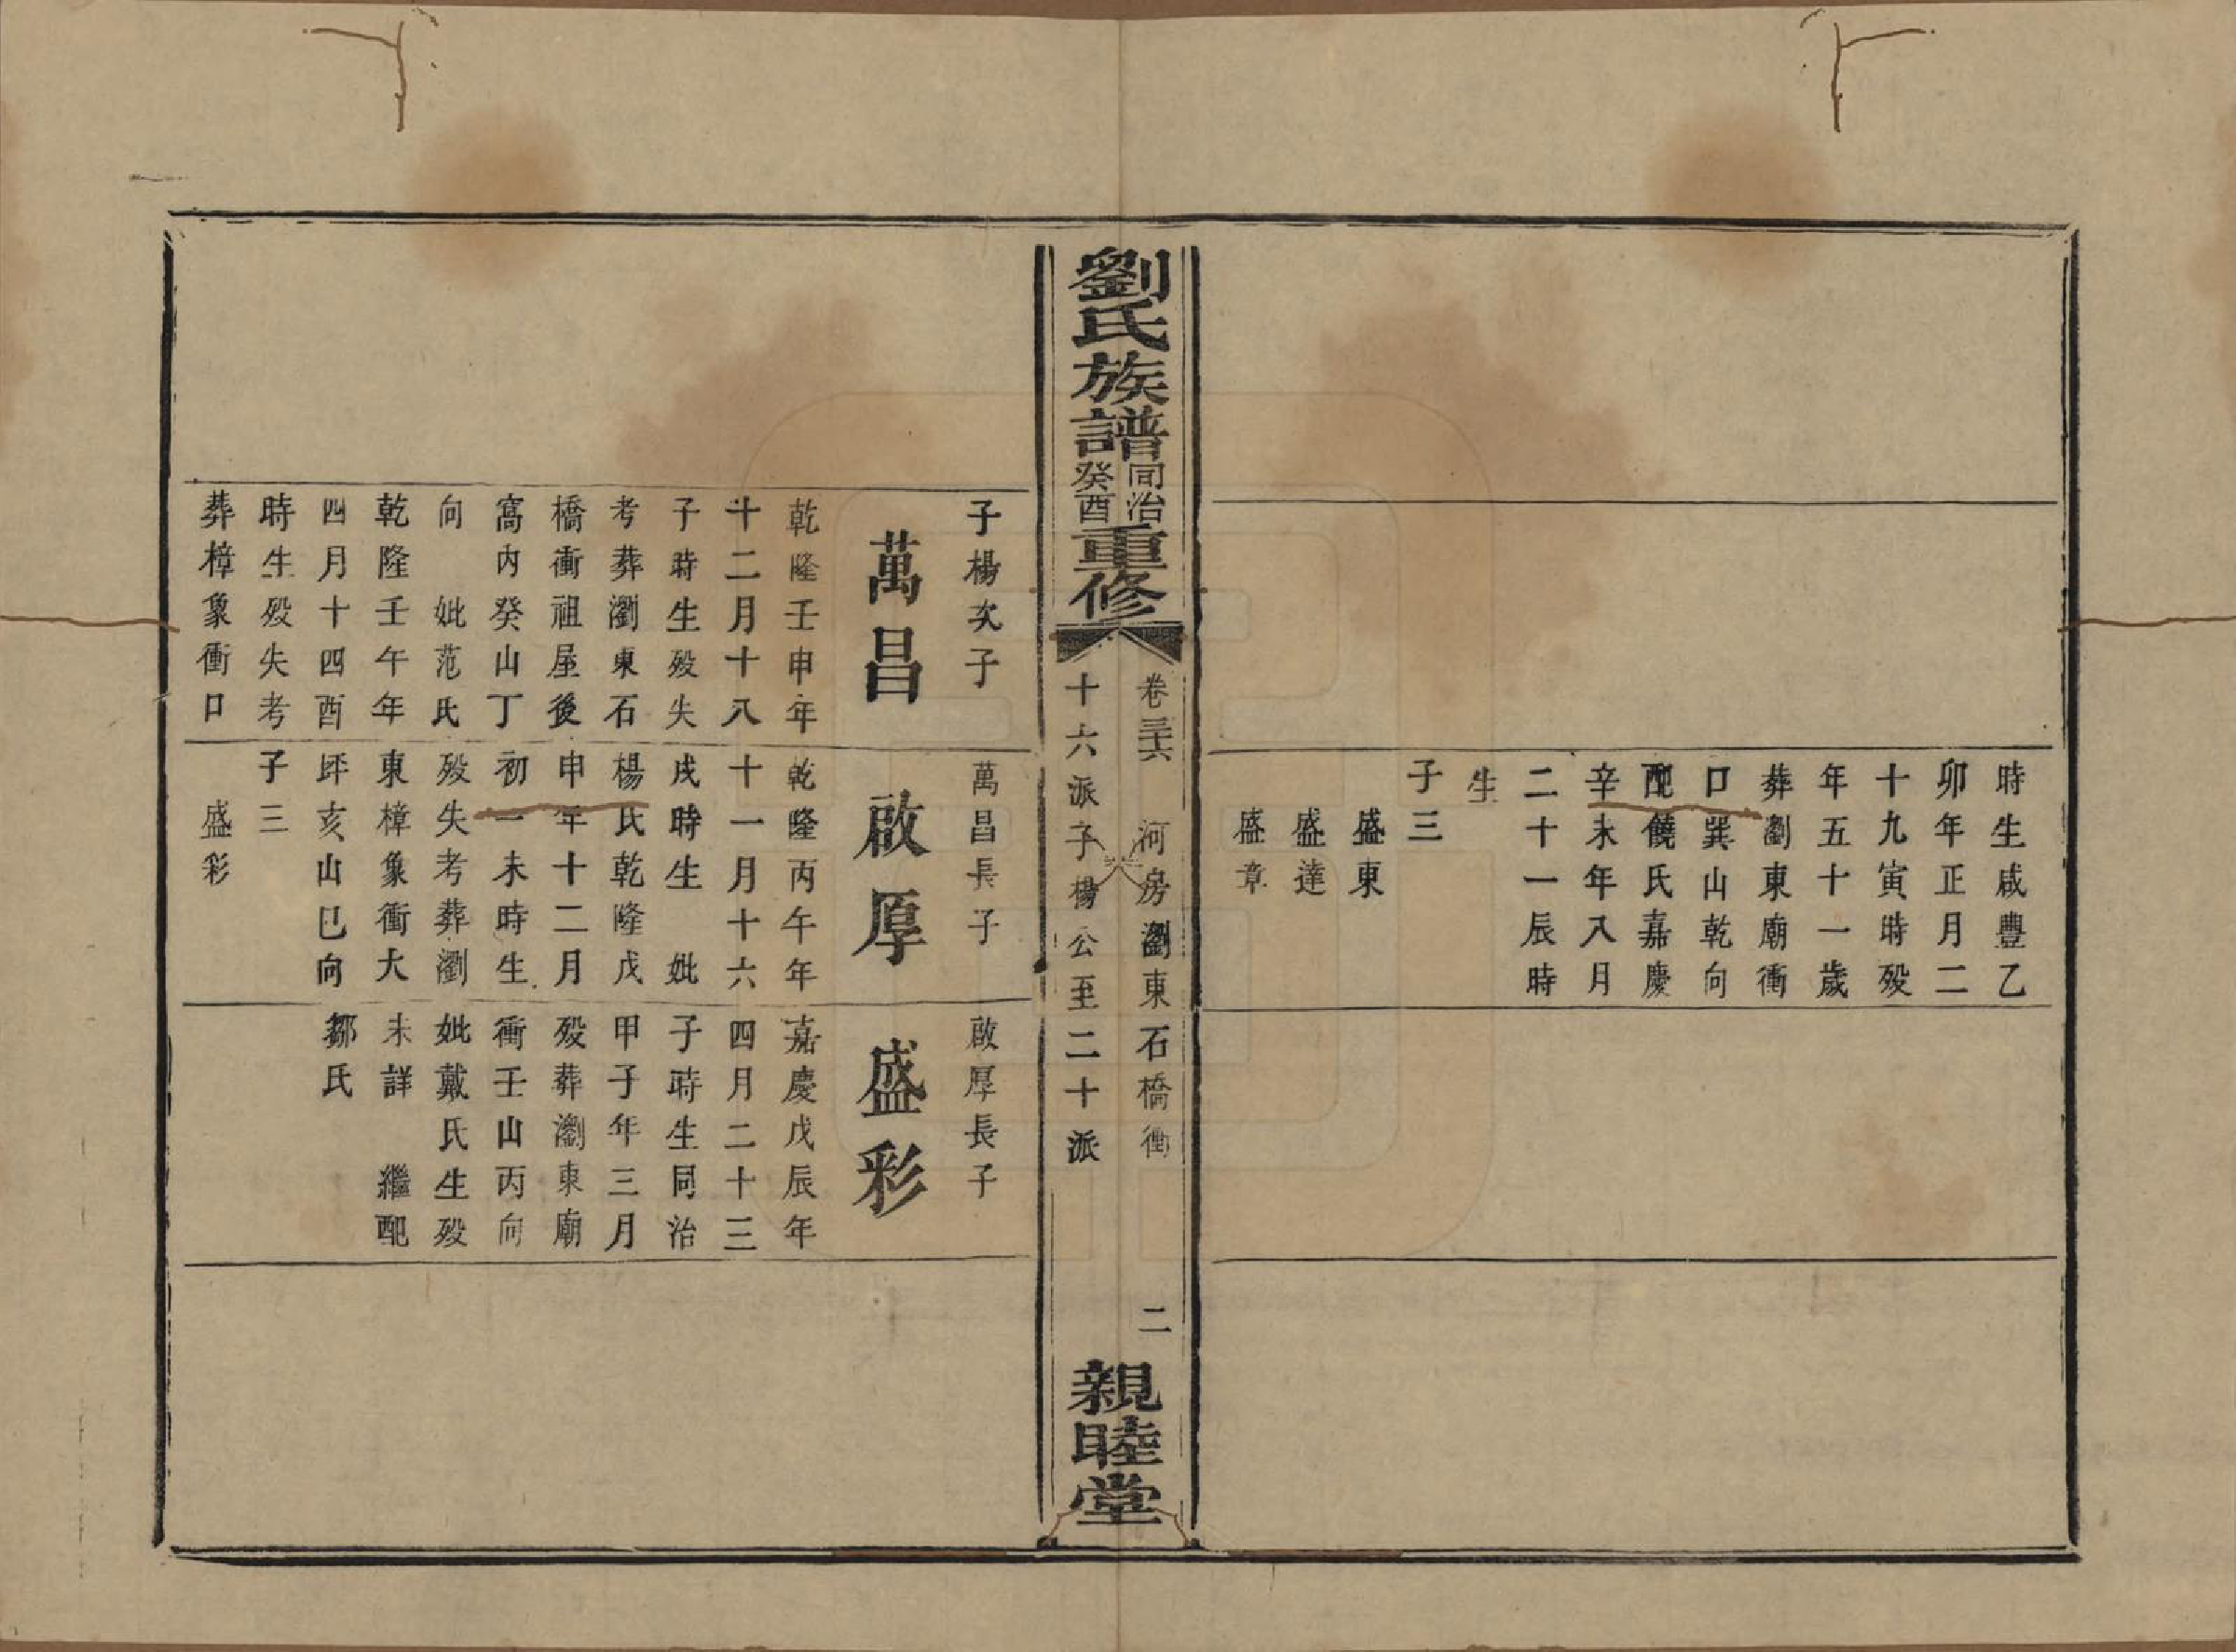 時生咸豐乙
卯年正月二
十九寅時殁
年五十一歲
葬瀏東廟衝
口巽山乾向
配饒氏嘉慶
辛未年八月
二十一辰時
生
子三
盛東
盛達
盛章
劉氏族譜同治癸酉重修
卷三十六 河房瀏東石橋衝 二
十六派子楊公至二十派
親睦堂
子楊次子
萬昌
乾隆壬申年
十二月十八
子時生殁失
考葬瀏東石
橋衝祖屋後
窩内癸山丁
向 妣范氏
乾隆壬午年
四月十四酉
時生殁失考
葬樟象衝口
萬昌長子
啟厚
乾隆丙午年
十一月十六
戌時生 妣
楊氏乾隆戊
申年十二月
初一未時生
殁失考葬瀏
東樟象衝大
坪亥山巳向
子三
盛彩
啟厚長子
盛彩
嘉慶戊辰年
四月二十三
子時生同治
甲子年三月
殁葬瀏東廟
衝壬山丙向
妣戴氏生殁
未詳 繼配
鄒氏